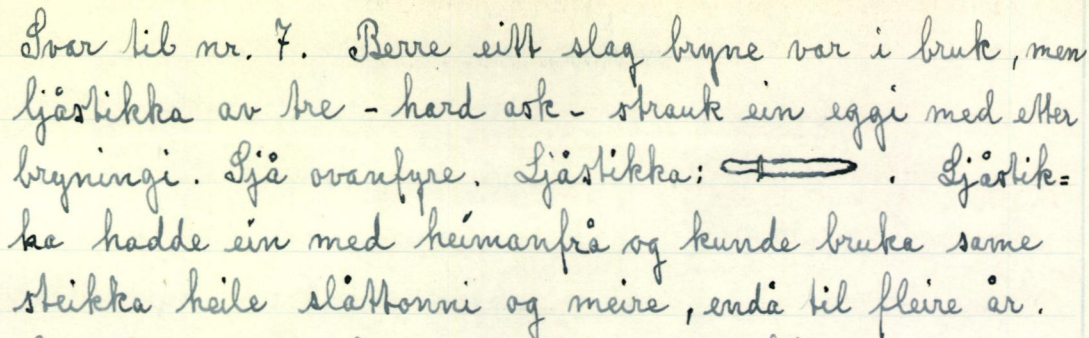 Svar til nr. 7. Berre eitt slag bryne var i bruk, men
ljåstikka av tre - hard ask - strauk ein eggi med etter
bryningi. Sjå ovanfyre. Ljåstikka: . Ljåstik=
ka hadde ein med heimanfrå og kunde bruka same
steikka heile slåttonni og meire, endå til fleire år.